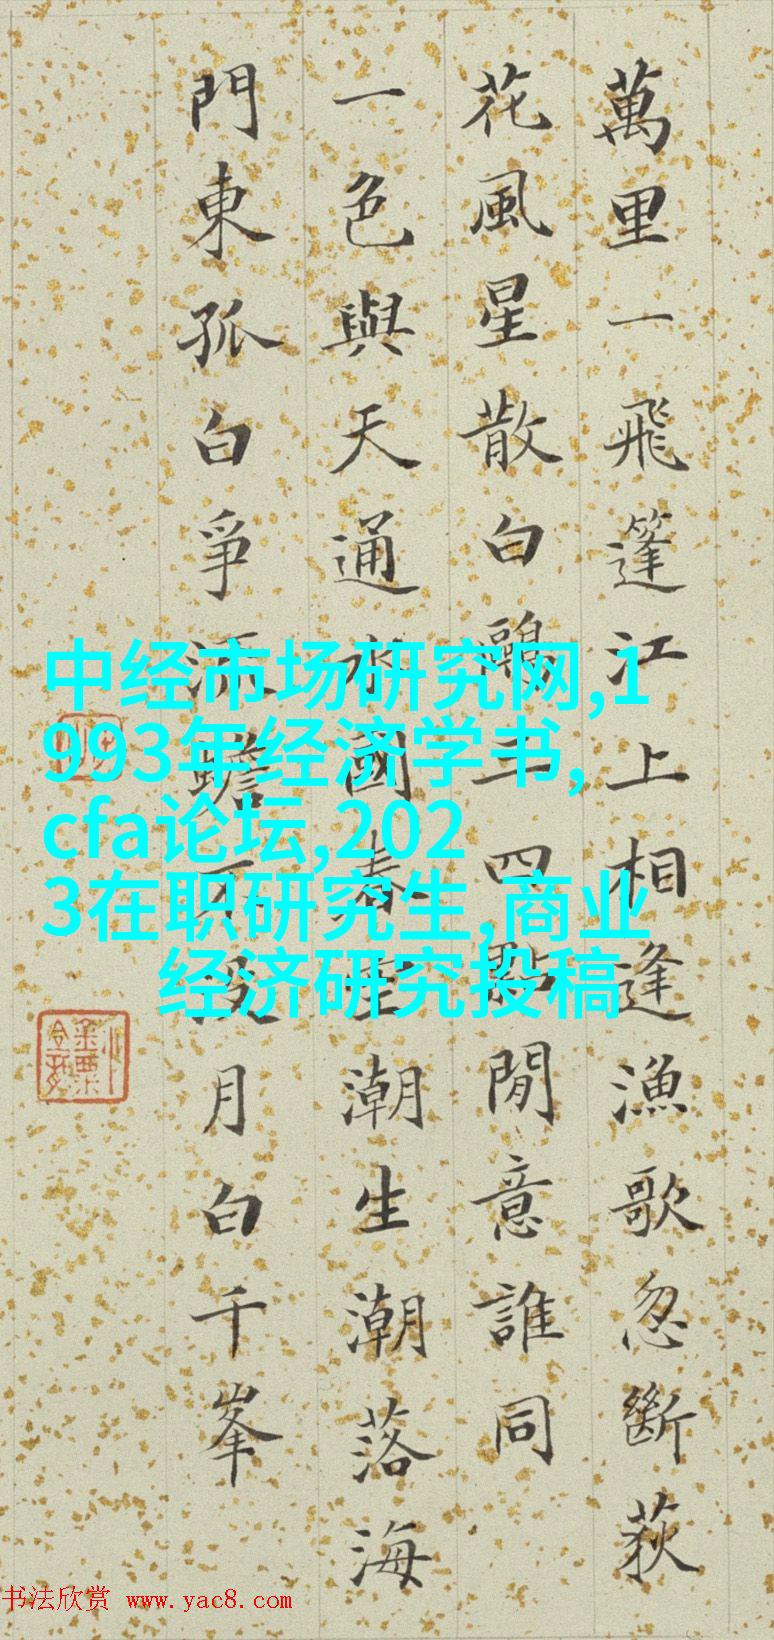 萬里一飛篷江上相逢漁歌忽斷荻
花風星散白鷗三四點閒意誰同
一色與天通水國春空潮生潮落海
門東孤白爭流蟾不沒月白千峯
中经市场研究网,1
993年经济学书,
cfa论坛,202
3在职研究生,商业
经济研究投稿
书法欣赏 www.yac8.com